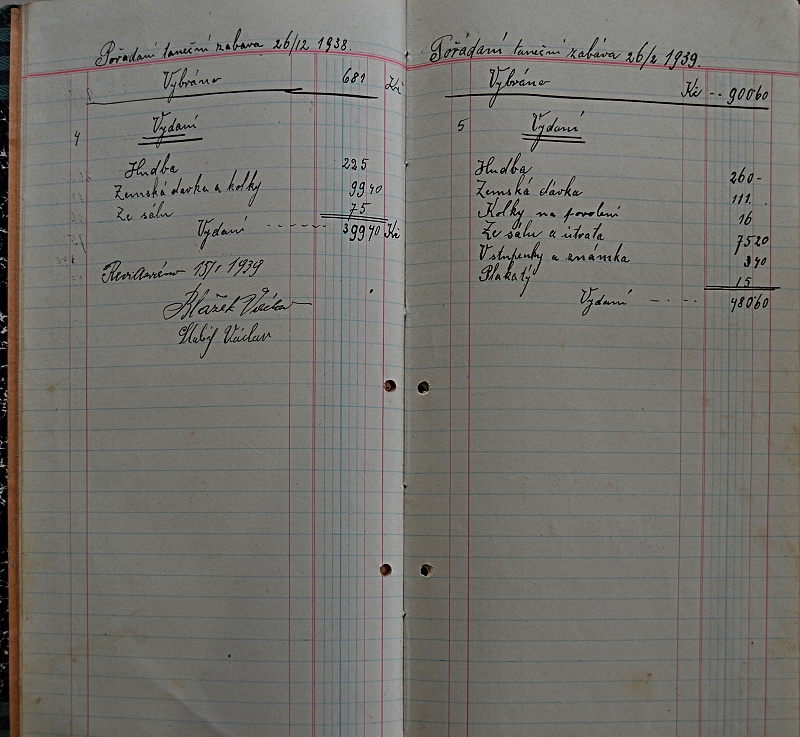 Pořádaní taneční zabava 26/12 1938.
Vybráno 681 Kč
4 Vydaní
Hudba 225
Zemská davka a kolky 99 40
Ze sálu 75
Vydaní 399 40 Kč
Revidováno 15/1 1939
Blažek Václav
Slabý Václav
Pořádaní taneční zabáva 26/2 1939.
Vybráno Kč -- 900 60
5 Vydaní
Hudba 260-
Zemská dávka 111.
Kolky na povolení 16
Ze sálu a útrata 75 20
Vstupenky a známka 3 40
Plakatý 15
Vydaní 480 60